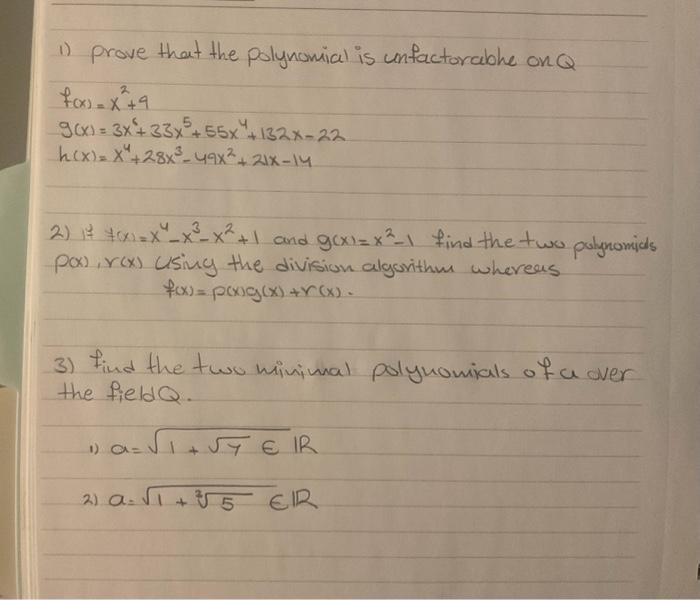 1) prove that the polynomial is unfactorabhe on Q
f(x) = x²+9
g(x) = 3x⁶+33x⁵+55x⁴+132x-22
h(x) = x⁴+28x³-49x²+21x-14
2) if f(x)=x⁴-x³-x²+1 and g(x)=x²-1 find the two polynomials
p(x), r(x) using the division algorithm whereas
f(x) = p(x)g(x)+r(x).
3) find the two minimal polynomials of a over
the field Q.
1) a=√(1+√7) ∈ IR
2) a=√(1+∛5) ∈ IR